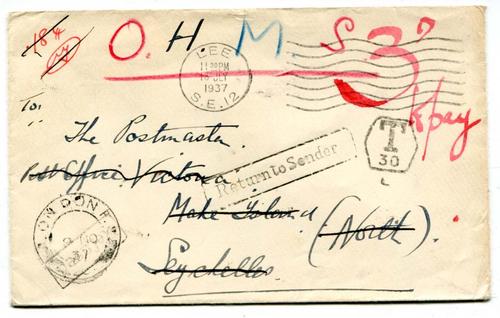 O. H M. S 3
LEE
11.30PM
16 JLY
1937
S.E.12
to pay
To:
The Postmaster.
Post Office Victoria
Return to Sender
T
30
L
Mahe Island (North).
Seychelles
LONDON